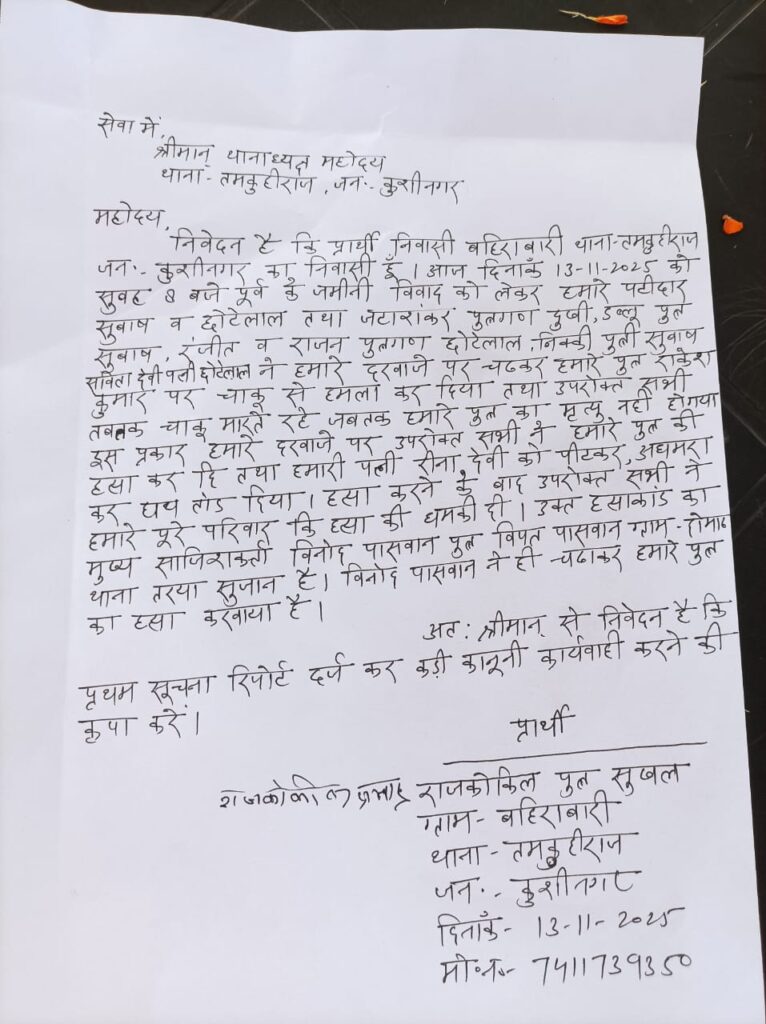 सेवा में,
श्रीमान् थानाध्यक्ष महोदय
थाना- तमकुहीराज, जनः- कुशीनगर
महोदय,
निवेदन है कि प्रार्थी निवासी बहिराबारी थाना-तमकुहीराज
जनः- कुशीनगर का निवासी हूँ। आज दिनाँक 13-11-2025 को
सुबह 8 बजे पूर्व के जमीनी विवाद को लेकर हमारे पटीदार
सुबाष व छोटेलाल तथा जटाशंकर पुत्रगण दुखी, डब्लू पुत्र
सुबाष, रंजीत व राजन पुत्रगण छोटेलाल, निक्की पुत्री सुबाष
सविता देवी पत्नी छोटेलाल ने हमारे दरवाजे पर चढकर हमारे पुत्र राकेश
कुमार पर चाकू से हमला कर दिया तथा उपरोक्त सभी
तबतक चाकू मारते रहे जबतक हमारे पुत्र का मृत्यु नहीं होगया
इस प्रकार हमारे दरवाजे पर उपरोक्त सभी ने हमारे पुत्र की
हत्या कर दि तथा हमारी पत्नी रीना देवी को पीटकर, अधमरा
कर हाथ तोड दिया। हत्या करने के बाद उपरोक्त सभी ने
हमारे पूरे परिवार कि हत्या की धमकी दी। उक्त हत्याकांड का
मुख्य साजिशकर्ता विनोद पासवान पुत्र विपत पासवान ग्राम-
थाना तरया सुजान है। विनोद पासवान ने ही चढाकर हमारे पुत्र
का हत्या करवाया है।
अतः श्रीमान् से निवेदन है कि
प्रथम सूचना रिपोर्ट दर्ज कर कड़ी कानूनी कार्यवाही करने की
कृपा करें।
प्रार्थी
राजकोकील प्रसाद राजकोकिल पुत्र सुखल
ग्राम- बहिराबारी
थाना- तमकुहीराज
जनः- कुशीनगर
दिनाँक- 13-11-2025
मो०न०- 7411739350